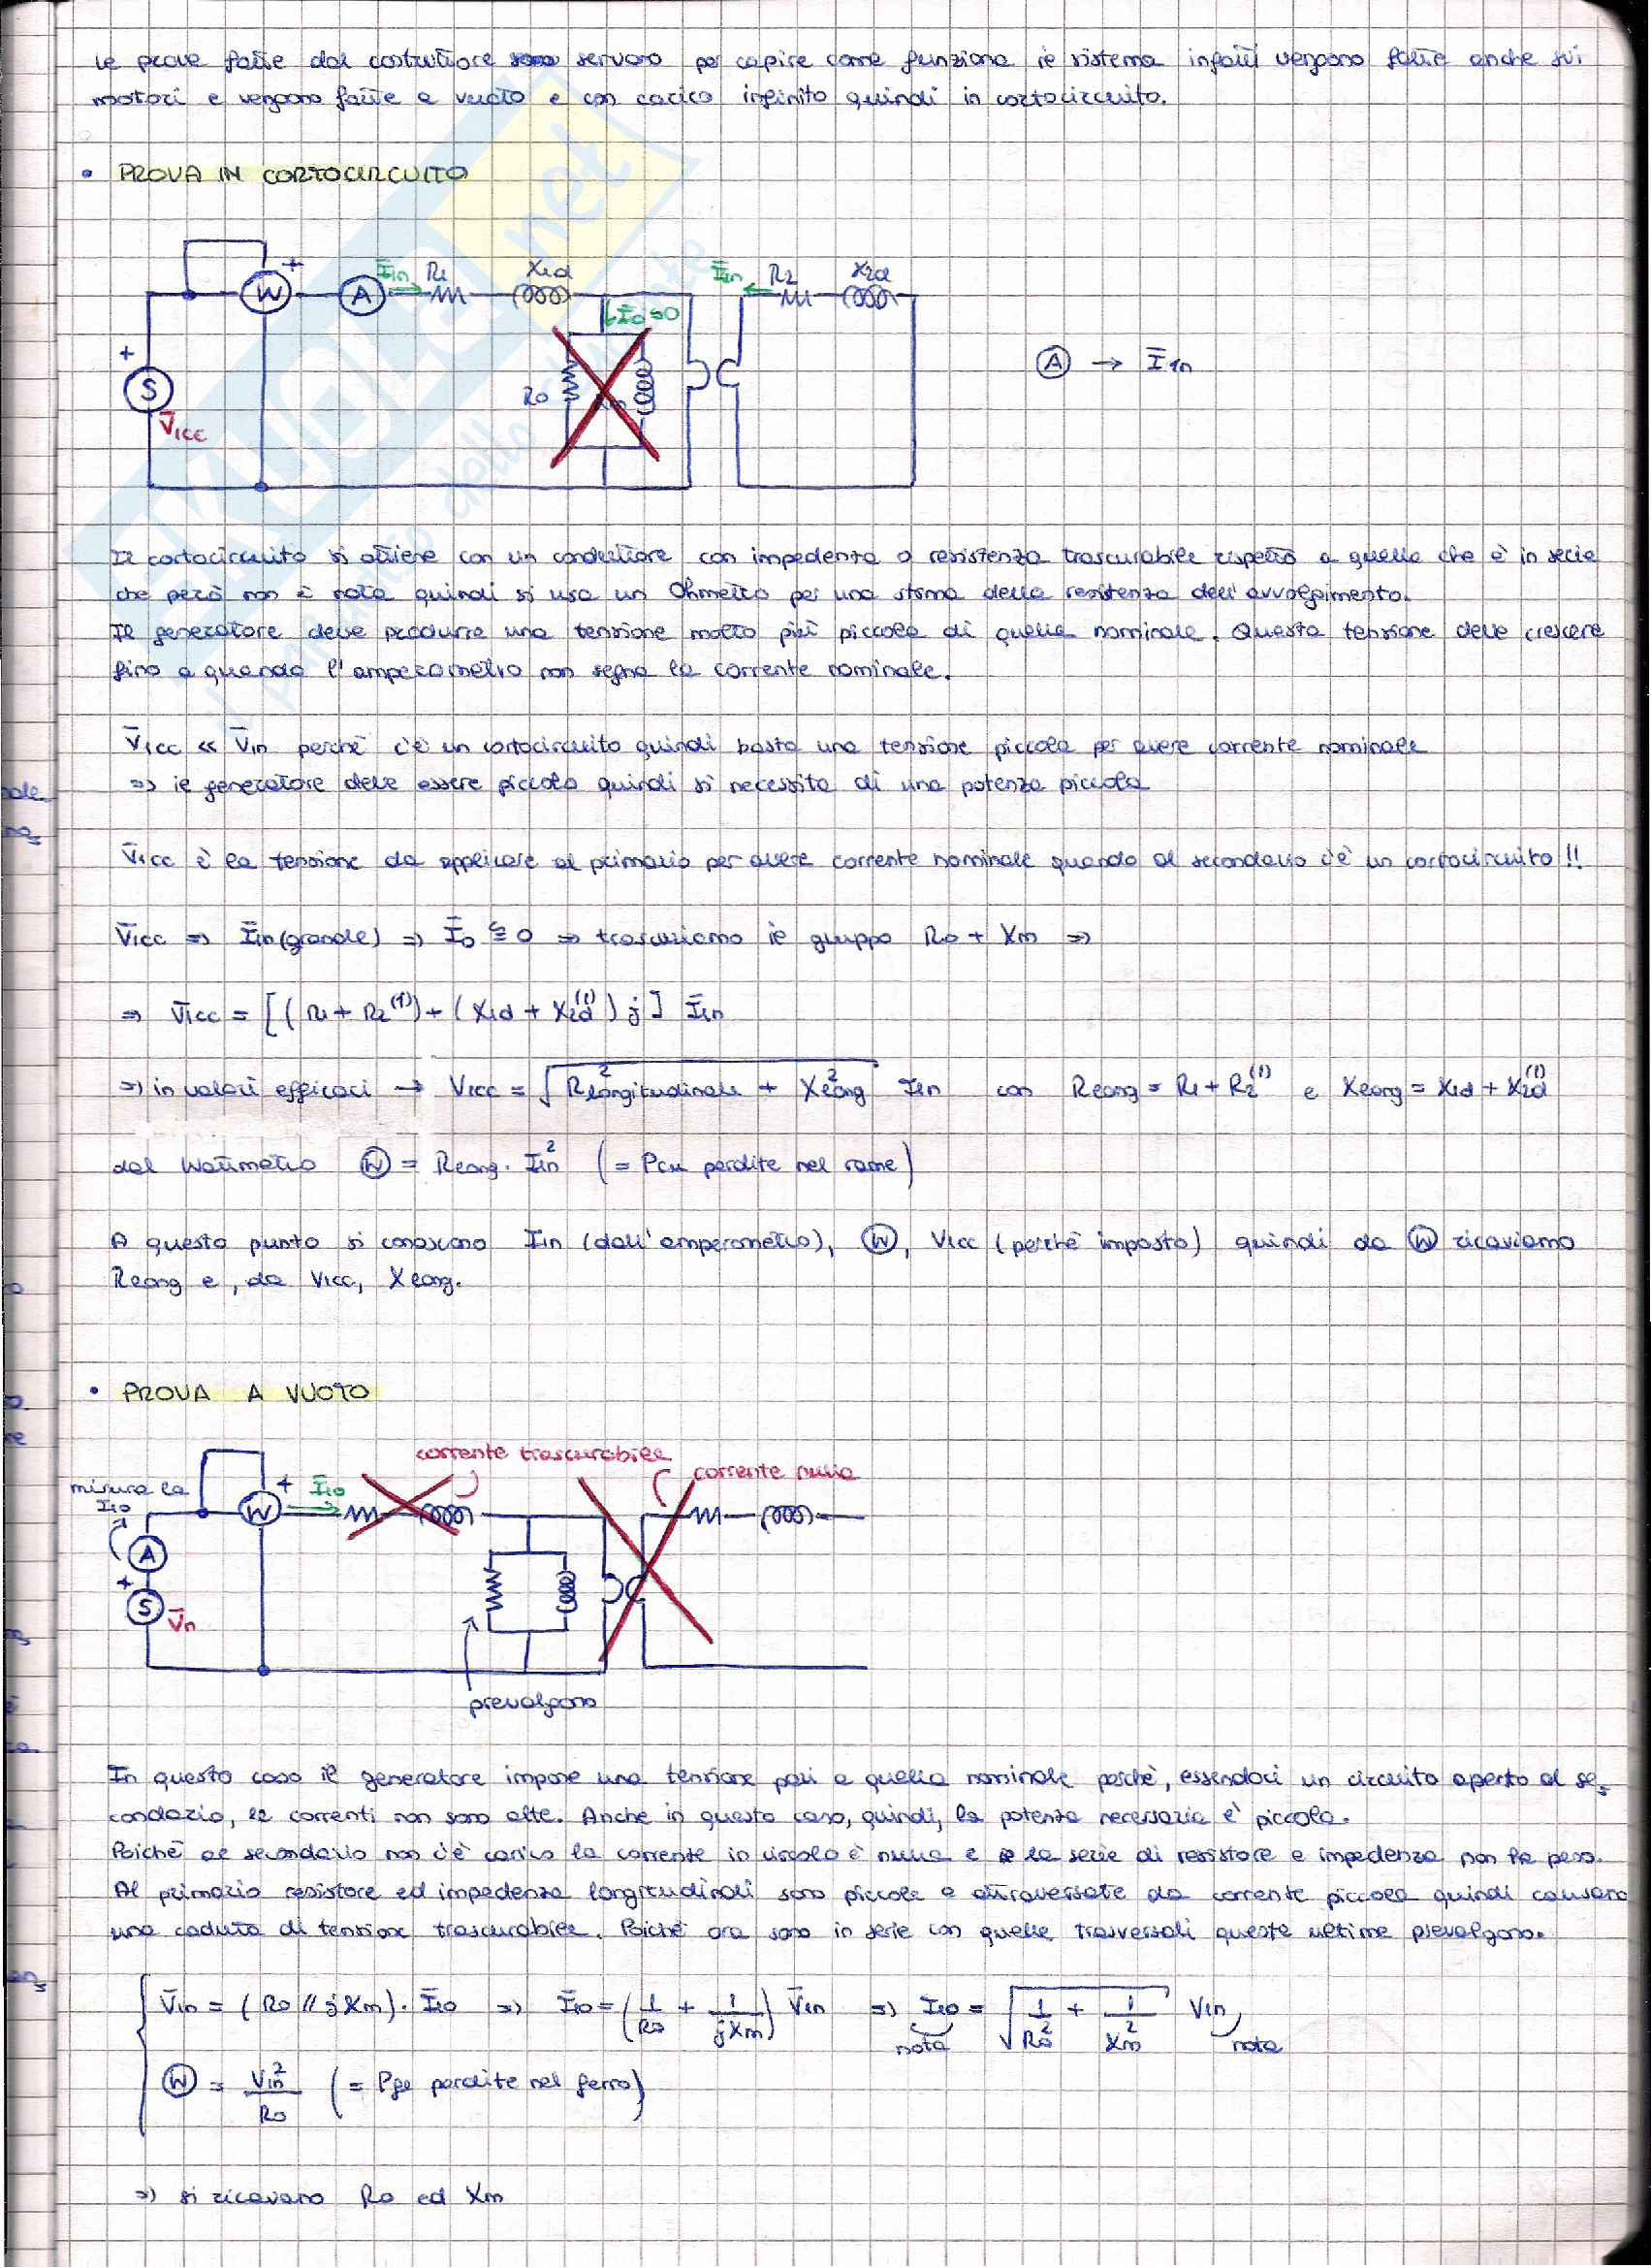 Le prove fatte dal costruttore servono per capire come funziona il sistema infatti vengono fatte anche sui
motori e vengono fatte a vuoto e con carico infinito quindi in cortocircuito.
• PROVA IN CORTOCIRCUITO
+ W A I̅1n R1 X1d I̅1n R2 X2d
I̅0≅0
+ S V̅1cc R0
A → I̅1n
Il cortocircuito si ottiene con un conduttore con impedenza o resistenza trascurabile rispetto a quella che è in serie
che però non è nota quindi si usa un Ohmetro per una stima della resistenza dell'avvolgimento.
Il generatore deve produrre una tensione molto più piccola di quella nominale. Questa tensione deve crescere
fino a quando l'amperometro non segna la corrente nominale.
V̅1cc << V̅1n perchè c'è un cortocircuito quindi basta una tensione piccola per avere corrente nominale
=> il generatore deve essere piccolo quindi si necessita di una potenza piccola
V̅1cc è la tensione da applicare al primario per avere corrente nominale quando al secondario c'è un cortocircuito!!
V̅1cc => I̅1n (grande) => I̅0 ≅ 0 => trascuriamo il gruppo R0 + Xm =>
=> V̅1cc = [(R1 + R2⁽¹⁾) + (X1d + X2d⁽¹⁾) j] I̅1n
=> in valori efficaci → V1cc = √(R²longitudinale + X²long) I1n con Rlong = R1 + R2⁽¹⁾ e Xlong = X1d + X2d⁽¹⁾
dal Wattmetro W = Rlong · I1n² (= Pcu perdite nel rame)
A questo punto si conoscono I1n (dall'amperometro), W, V1cc (perchè imposto) quindi da W ricaviamo
Rlong e, da V1cc, Xlong.
• PROVA A VUOTO
corrente trascurabile
corrente nulla
misura la I10
W + I̅10
A
+ S V̅n
prevalgono
In questo caso il generatore impone una tensione pari a quella nominale perchè, essendoci un circuito aperto al se-
condario, le correnti non sono alte. Anche in questo caso, quindi, la potenza necessaria è piccola.
Poichè al secondario non c'è carico la corrente in circolo è nulla e la serie di resistore e impedenza non ha peso.
Al primario resistore ed impedenza longitudinali sono piccole e attraversate da corrente piccola quindi causano
una caduta di tensione trascurabile. Poichè ora sono in serie con quelle trasversali queste ultime prevalgono.
V̅1n = (R0 // jXm) · I̅10 => I̅10 = (1/R0 + 1/jXm) V̅1n => I10 = √(1/R0² + 1/Xm²) V1n
nota nota
W = V1n²/R0 (= Pfe perdite nel ferro)
=> si ricavano R0 ed Xm